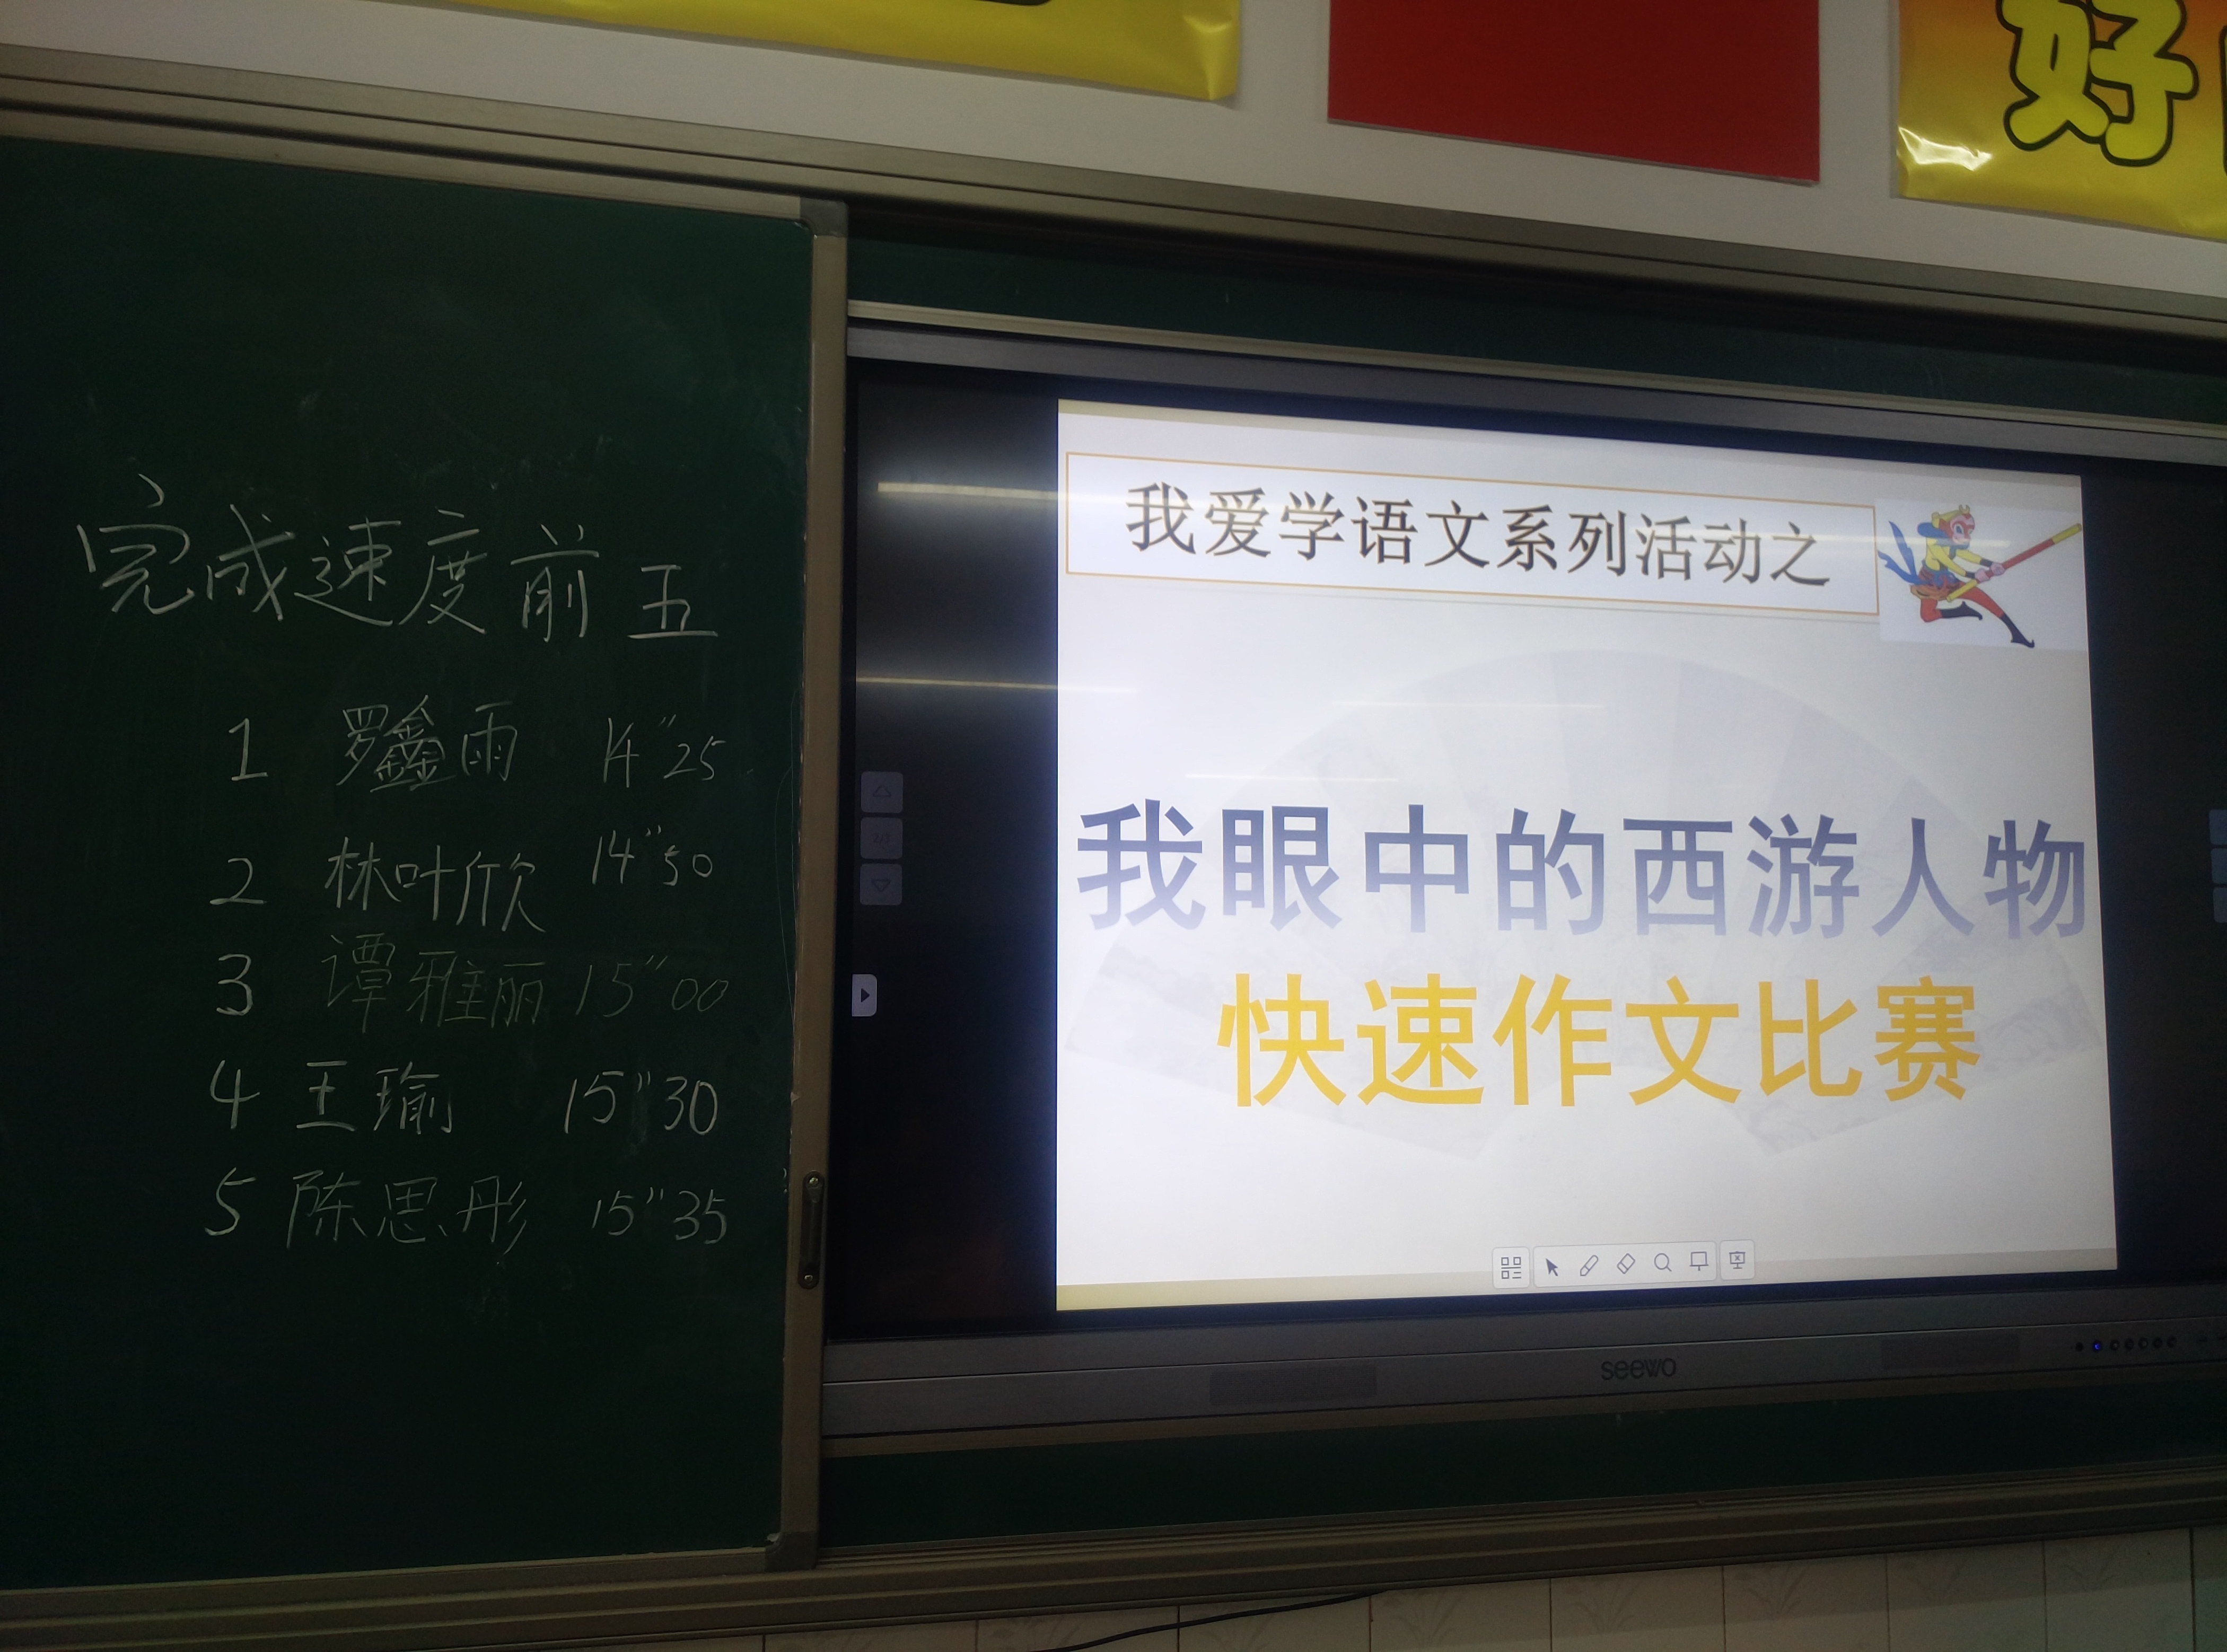 好
完成速度前五
1 罗鑫雨 14"25
2 林叶欣 14"50
3 谭雅丽 15"00
4 王瑜 15"30
5 陈思彤 15"35
我爱学语文系列活动之
我眼中的西游人物
快速作文比赛
seewo